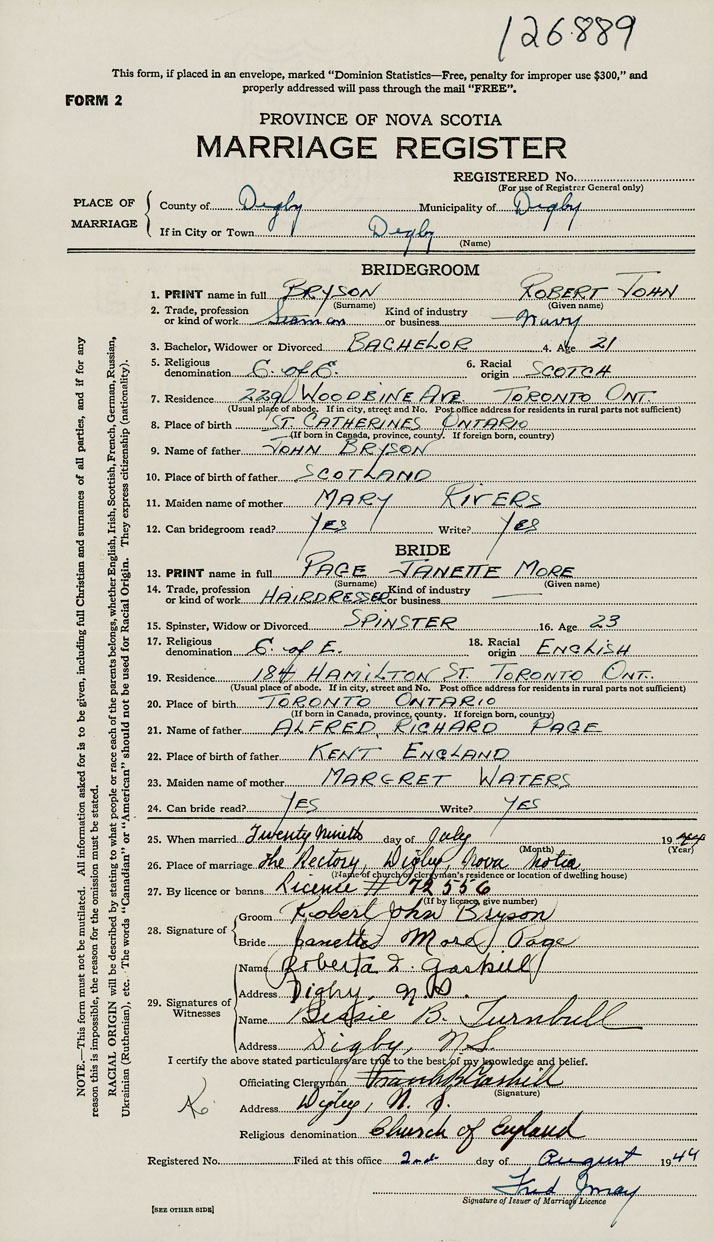 126889
This form, if placed in an envelope, marked “Dominion Statistics—Free, penalty for improper use $300,” and
properly addressed will pass through the mail “FREE”.
FORM 2
PROVINCE OF NOVA SCOTIA
MARRIAGE REGISTER
REGISTERED No.
(For use of Registrar General only)
PLACE OF MARRIAGE
County of Digby Municipality of Digby
If in City or Town Digby
(Name)
BRIDEGROOM
1. PRINT name in full BRYSON ROBERT JOHN
(Surname) (Given name)
2. Trade, profession or kind of work Seaman Kind of industry or business Navy
3. Bachelor, Widower or Divorced BACHELOR 4. Age 21
5. Religious denomination C. of E. 6. Racial origin SCOTCH
7. Residence 2290 WOODBINE AVE. TORONTO ONT.
(Usual place of abode. If in city, street and No. Post office address for residents in rural parts not sufficient)
8. Place of birth ST. CATHERINES ONTARIO
(If born in Canada, province, county. If foreign born, country)
9. Name of father JOHN BRYSON
10. Place of birth of father SCOTLAND
11. Maiden name of mother MARY RIVERS
12. Can bridegroom read? YES Write? YES
BRIDE
13. PRINT name in full PAGE JANETTE MORE
(Surname) (Given name)
14. Trade, profession or kind of work HAIRDRESSER Kind of industry or business —
15. Spinster, Widow or Divorced SPINSTER 16. Age 23
17. Religious denomination C. of E. 18. Racial origin ENGLISH
19. Residence 184 HAMILTON ST. TORONTO ONT.
(Usual place of abode. If in city, street and No. Post office address for residents in rural parts not sufficient)
20. Place of birth TORONTO ONTARIO
(If born in Canada, province, county. If foreign born, country)
21. Name of father ALFRED RICHARD PAGE
22. Place of birth of father KENT ENGLAND
23. Maiden name of mother MARGRET WATERS
24. Can bride read? YES Write? YES
25. When married Twenty Nineth day of July 1944
(Month) (Year)
26. Place of marriage the Rectory, Digby, Nova Scotia
(Name of church or clergyman's residence or location of dwelling house)
27. By licence or banns Licence # 72556
(If by licence, give number)
28. Signature of
Groom Robert John Bryson
Bride Janette More Page
29. Signatures of Witnesses
Name Roberta I. Gaskill
Address Digby, N.S.
Name Bessie B. Turnbull
Address Digby, N.S.
I certify the above stated particulars are true to the best of my knowledge and belief.
Officiating Clergyman Frank Gaskill
(Signature)
Address Digby, N. S.
Religious denomination Church of England
Registered No. Filed at this office 2nd day of August 1944
Fred Imay
Signature of Issuer of Marriage Licence
[SEE OTHER SIDE]
NOTE.—This form must not be mutilated. All information asked for is to be given, including full Christian and surnames of all parties, and if for any
reason this is impossible, the reason for the omission must be stated.
RACIAL ORIGIN will be described by stating to what people or race each of the parents belongs, whether English, Irish, Scottish, French, German, Russian,
Ukrainian (Ruthenian), etc. The words “Canadian” or “American” should not be used for Racial Origin. They express citizenship (nationality).